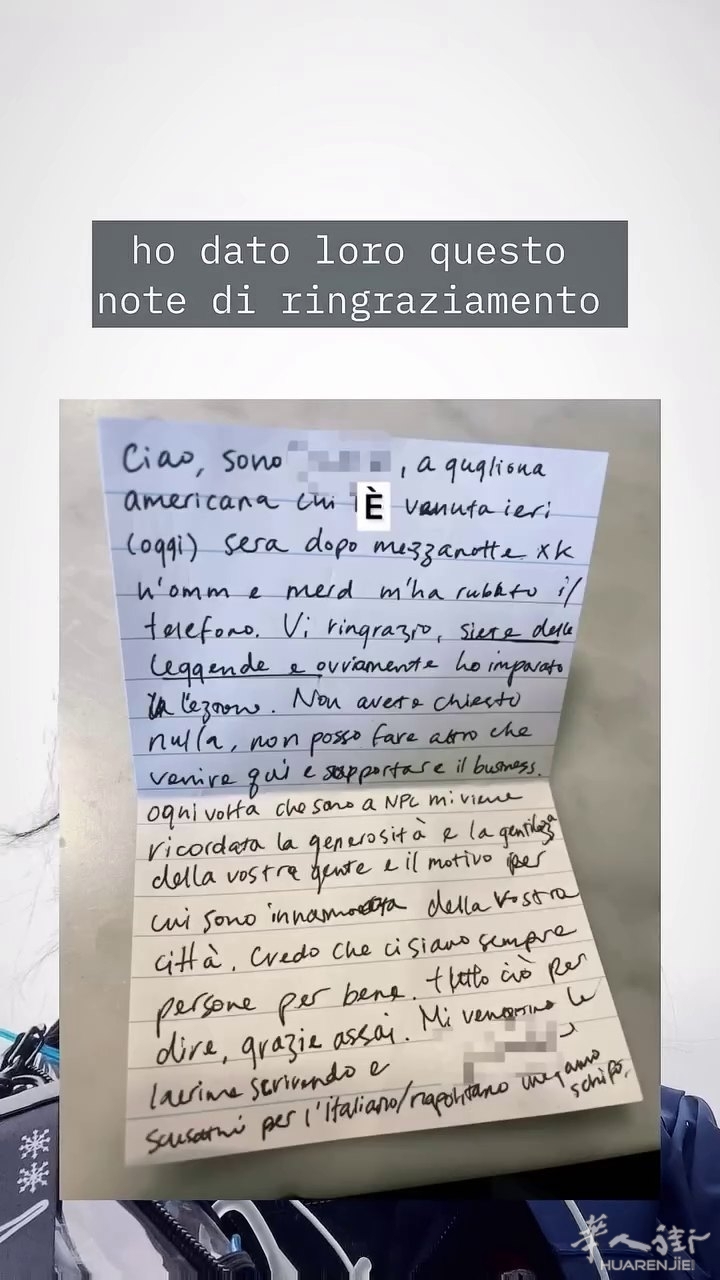 ho dato loro questo
note di ringraziamento
Ciao, sono , a quagliona
americana cui È venuta ieri
(oggi) sera dopo mezzanotte xk
n'omm e merd m'ha rubato il
telefono. Vi ringrazio, siete delle
leggende e ovviamente ho imparato
la lezione. Non avete chiesto
nulla, non posso fare altro che
venire qui e supportare il business.
ogni volta che sono a NPL mi viene
ricordata la generosità e la gentilezza
della vostra gente e il motivo per
cui sono innamorata della vostra
città. Credo che ci siano sempre
persone per bene. tutto ciò per
dire, grazie assai. Mi vengono le
lacrime scrivendo e
scusatmi per l'italiano/napolitano schifo.
華人街
HUARENJIE